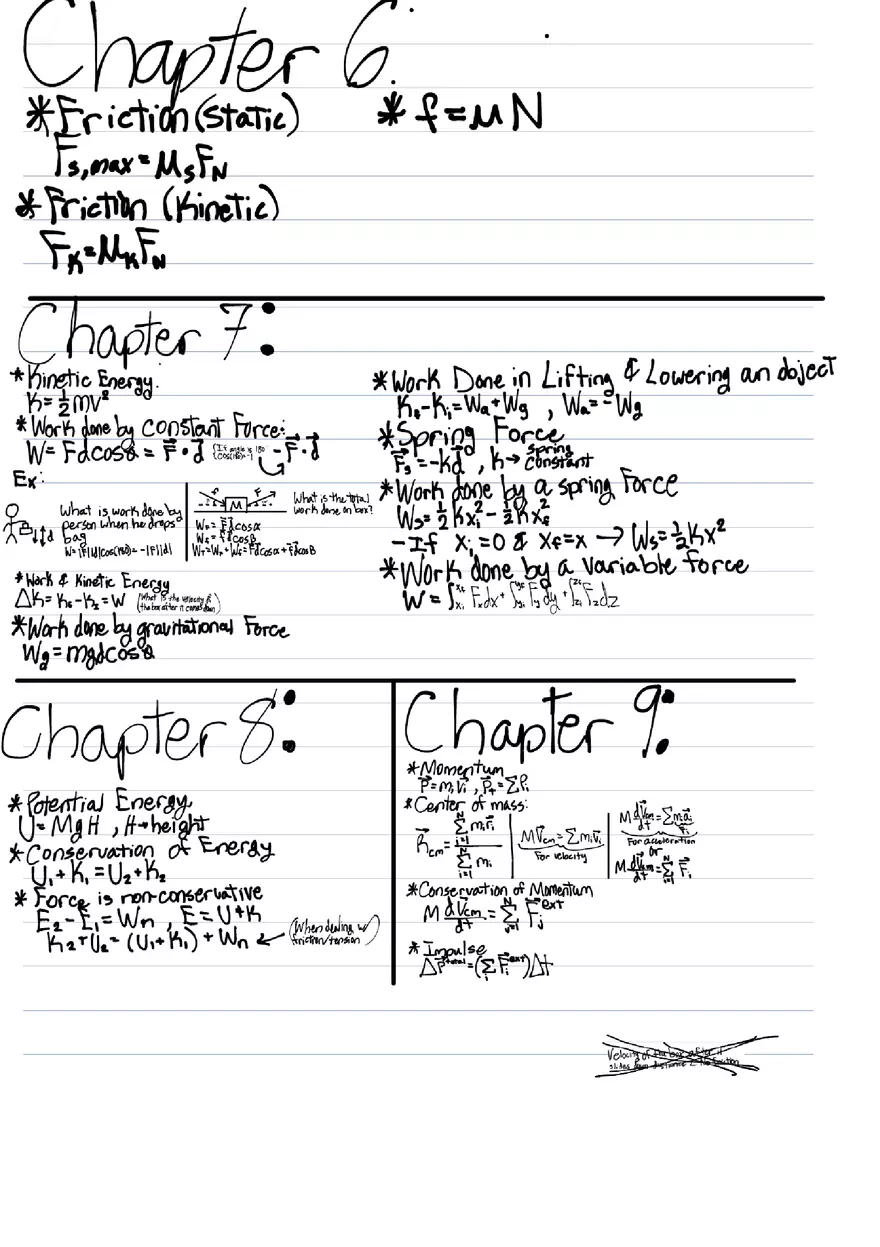 Chapter 6:
*Friction (Static)
F_s,max = μ_s F_N
*Friction (Kinetic)
F_K = μ_K F_N
* f = μN
Chapter 7:
*Kinetic Energy:
K = ½mv²
*Work done by constant Force:
W = Fdcosθ = F⃗ • d⃗ (If angle is 180 cos(180) = -1) -F⃗ • d⃗
Ex:
What is work done by
person when he drops
bag
W = |F||d|cos(180) = -|F||d|
M
What is the total
work done on box?
*Work & Kinetic Energy
ΔK = K_f - K_i = W (What is the velocity of
the box after it comes down)
*Work done by gravitational Force
W_g = mgdcosθ
*Work Done in Lifting & Lowering an object
K_f - K_i = W_a + W_g , W_a = -W_g
*Spring Force
F⃗_s = -kd⃗ , k → spring constant
*Work done by a spring Force
W_s = ½Kx_i² - ½Kx_f²
-If x_i = 0 & x_f = x → W_s = ½Kx²
*Work done by a variable force
W = ∫_{x_i}^{x_f} F_x dx + ∫_{y_i}^{y_f} F_y dy + ∫_{z_i}^{z_f} F_z dz
Chapter 8:
*Potential Energy
U = MgH , H → height
*Conservation of Energy
U₁ + K₁ = U₂ + K₂
* Force is non-conservative
E₂ - E₁ = W_n , E = U + K
K₂ + U₂ = (U₁ + K₁) + W_n ← (When dealing w/
friction/tension)
Chapter 9:
*Momentum
P⃗ = m_i v⃗_i , P⃗_T = ΣP⃗_i
*Center of mass:
R⃗_cm = Σ_{i=1}^{N} m_i r⃗_i / Σ_{i=1}^{N} m_i
MV⃗_cm = Σm_i v⃗_i
For velocity
M dV⃗_cm/dt = Σm_i a⃗_i
For acceleration
or
M dV⃗_cm/dt = Σ_{i=1}^{N} F⃗_i
*Conservation of Momentum
M dV⃗_cm/dt = Σ_{j=1}^{N} F⃗_j^ext
* Impulse
ΔP⃗^total = (Σ_i F⃗_i^ext)Δt
Velocity of the box after it
slides down distance